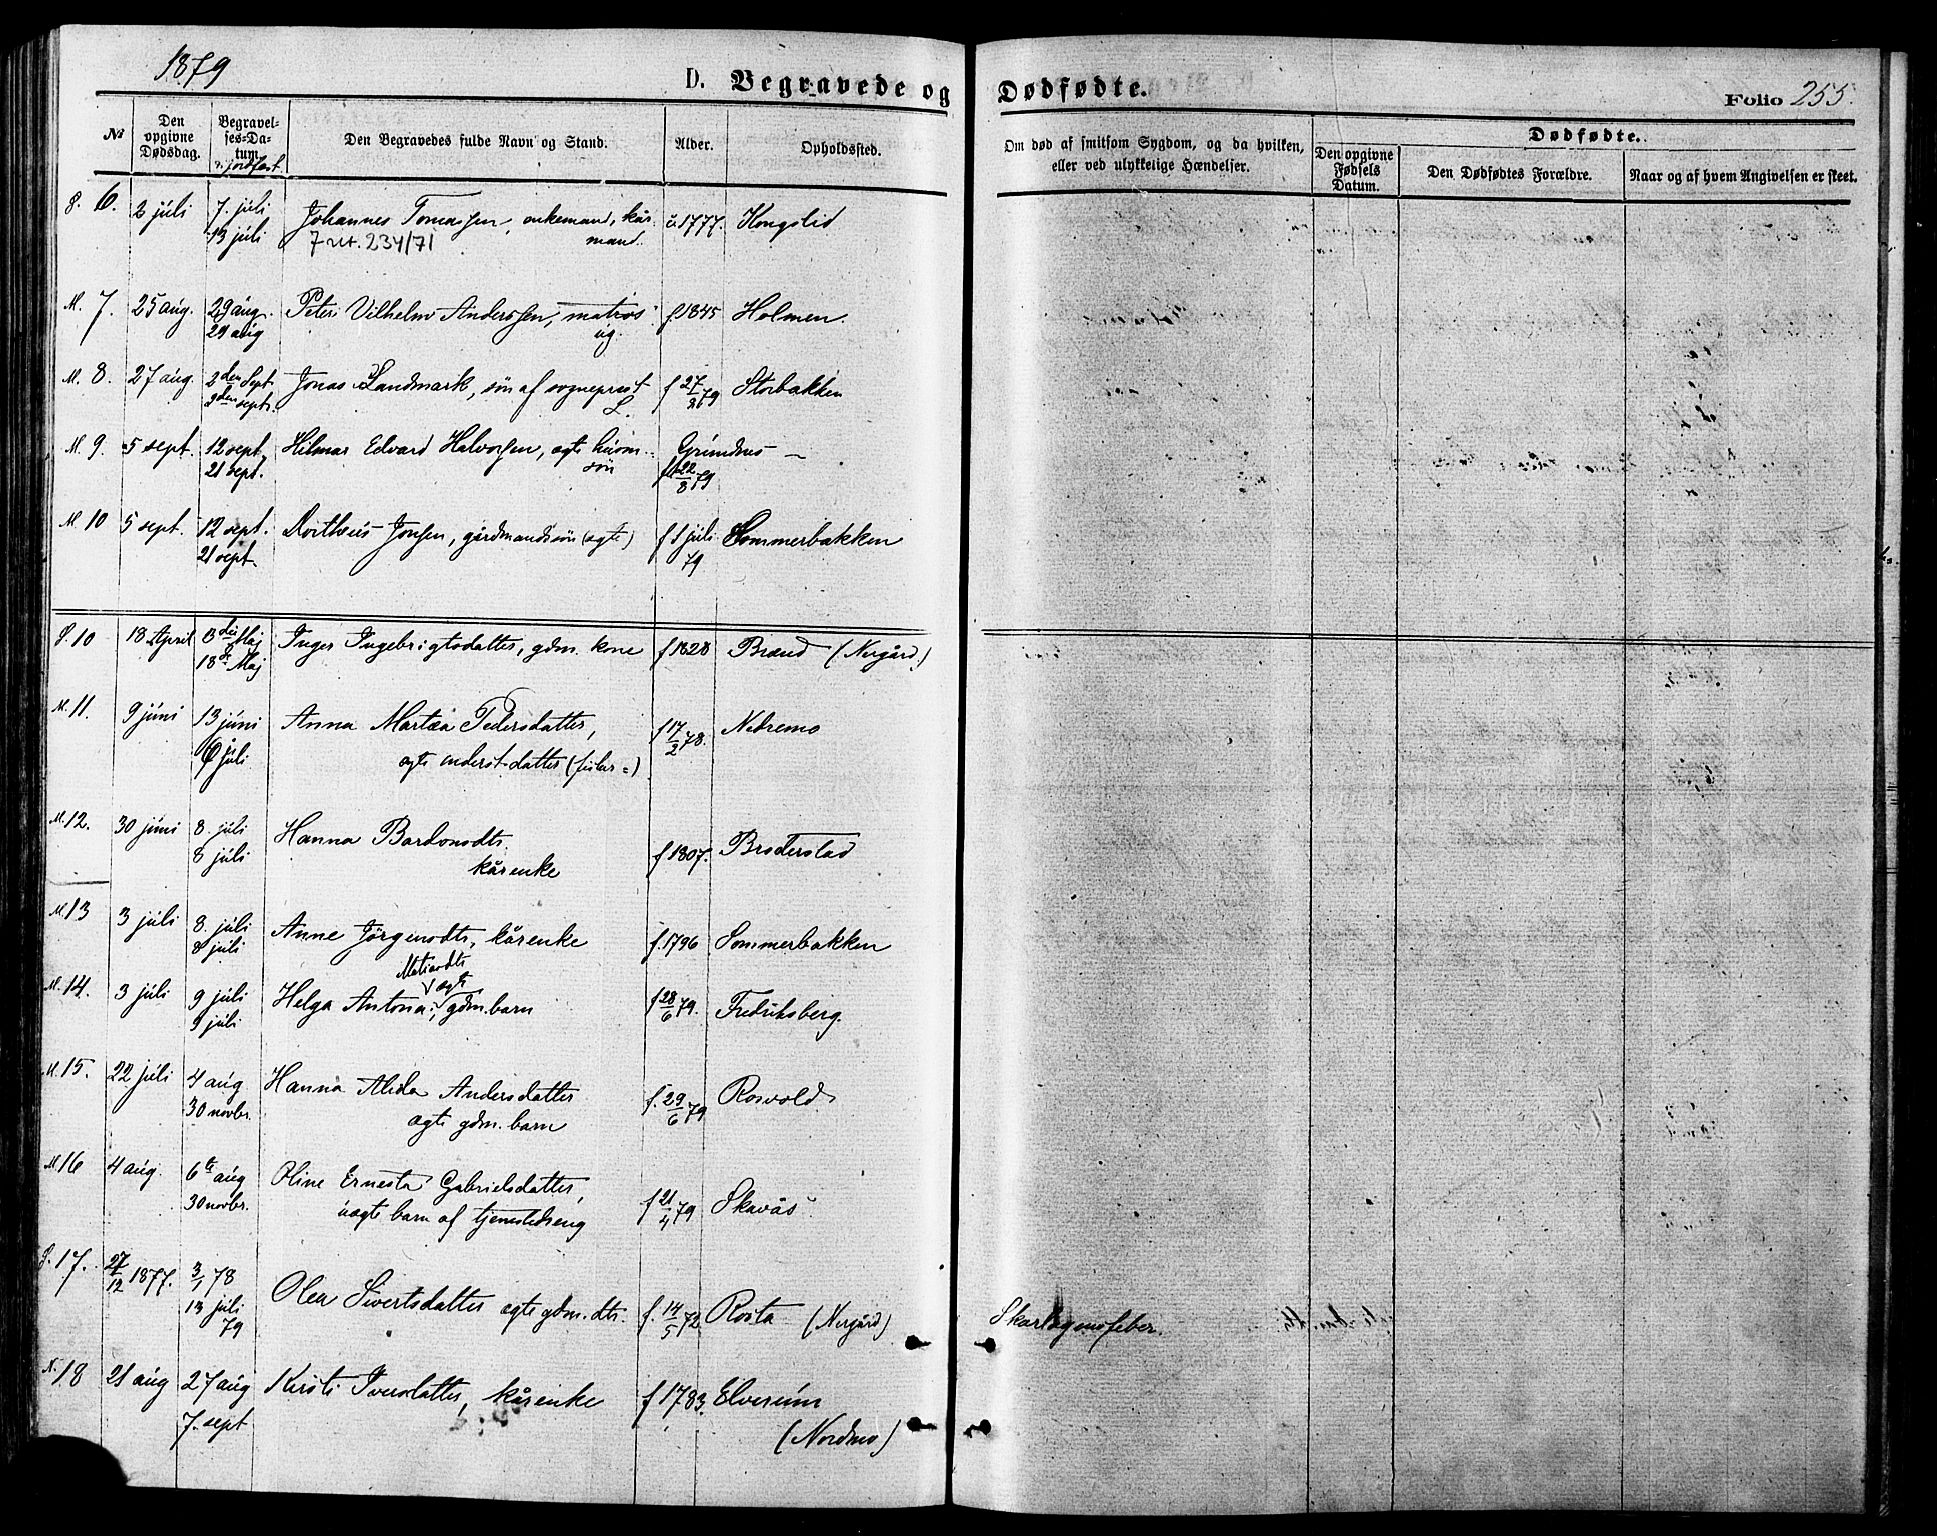 1879
D. Begravede og Dødfødte.
Folio 255.
No
Den opgivne Dødsdag.
Begravelses-Datum
Den Begravedes fulde Navn og Stand.
Alder.
Opholdssted.
Om død af smitsom Sygdom, og da hvilken, eller ved ulykkelige Hændelser.
Dødfødte.
Den opgivne Fødsels Datum.
Den Dødfødtes Forældre.
Naar og af hvem Angivelsen er skeet.
S. 6. 2 juli 7. juli Johannes Tomassen, enkemand, kår- 1777. Kongslid
13 juli mand.
234/71
M. 7. 25 aug. 29 aug. Peter Vilhelm Anderssen, matros f 1845 Holmen.
29 aug ug.
M. 8. 27 aug. 2den Sept Jonas Landmark, søn af sogneprest f 27/2 79 Storbakken
2den sept. L.
M. 9. 5 sept. 12 sept. Hilmar Edvard Halvorsen, ægte husm. Grundnes
21 sept. søn 22/8 79
M. 10 5 sept. 12 sept. Dortheus Jonsen, gårdmandssøn (ægte) f 1 juli Sommerbakken
21 sept. 79
S. 10 18 April 13de Maj Inger Ingebrigtsdatter, gdm. kone f 1828 Brænd (Nergård.)
18de Maj
M. 11. 9 juni 13 juni Anna Martæa Pedersdatter, f 17/2 78. Nedremo
6 juli ægte inderst datter (fisker=)
M. 12. 30 juni 8. juli Hanna Bardonsdtr. f 1807. Broderstad
8 juli kårenke
M. 13 3 juli 8. juli Anne Jörgensdtr, kårenke f. 1796 Sommerbakken
8 juli
Matisdtr
ægte
M. 14. 3 juli 9 juli Helga Antona, gdm. barn f 28/6 79. Fredriksberg.
9 juli
M. 15. 22 juli 4 aug Hanna Alida Andersdatter f. 29/6 79 Rosvold
30 novbr. ægte gdm. barn
M. 16 4 aug. 6te aug Oline Ernesta Gabrielsdatter, f 21/4 79 Skavås
30 novbr. uægte barn af tjenestedreng
S. 17. 27/12 1877. 3/1 78 Olea Sivertsdatter ægte gdm. dtr. f. 14/5 72 Rosta (Nergård) Skarlagensfeber.
13 juli
79
N. 18 21 aug 27 aug Kirsti Iversdatter, kårenke f 1783. Elverum
7. sept (Nordmo)